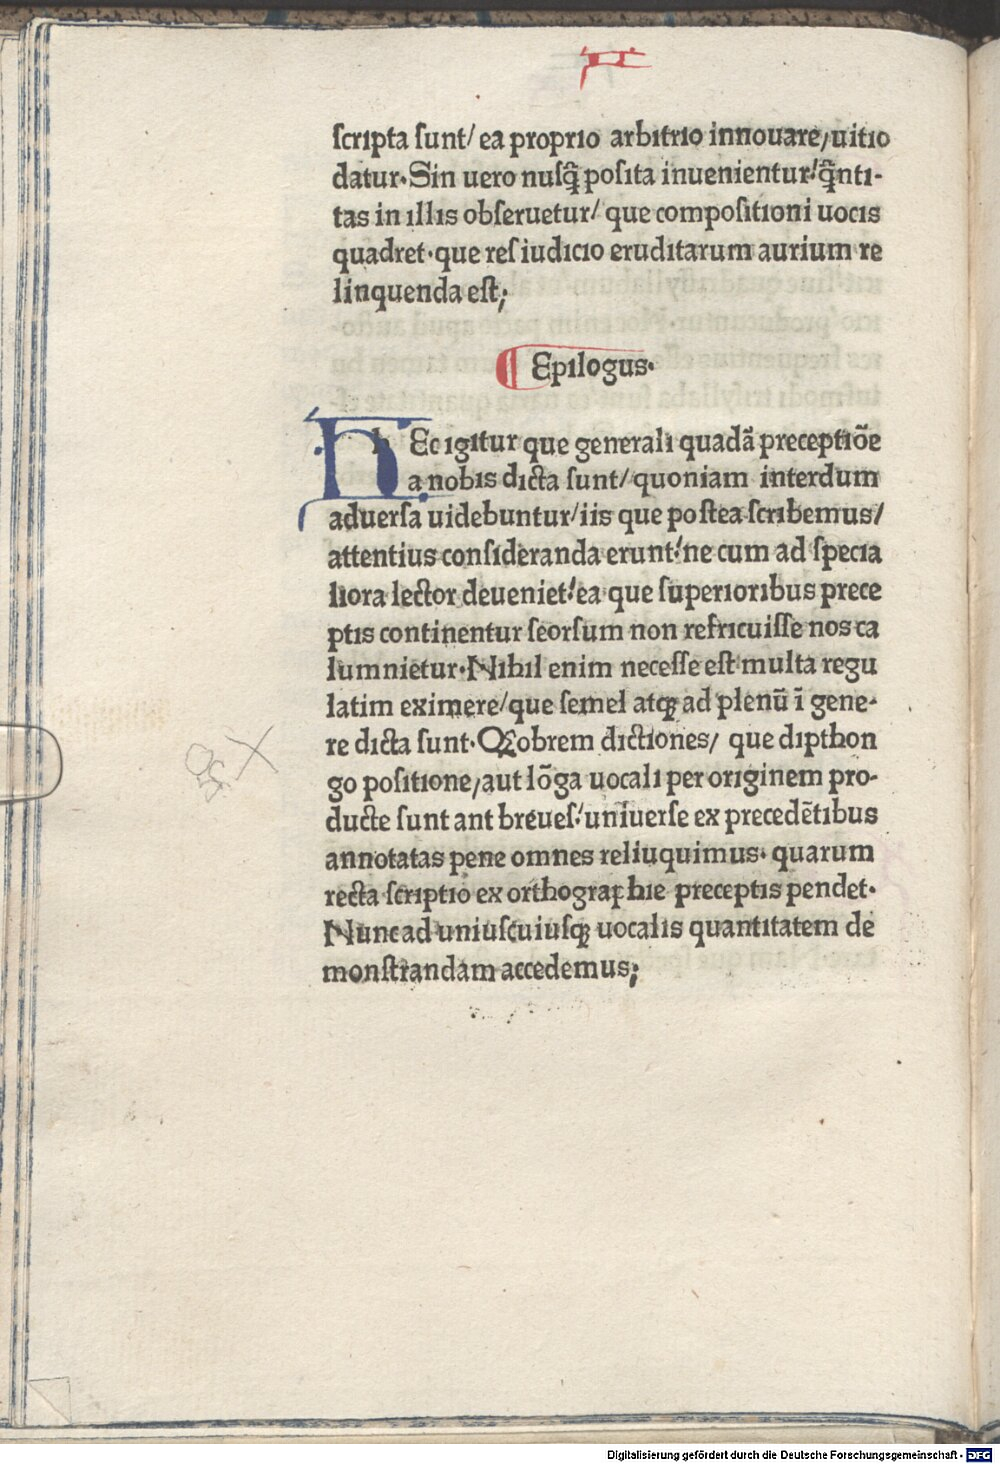 ſcripta ſunt/ ea proprio arbitrio innouare/uitio
datur·Sin uero nuſq̃ poſita inuenientur/q̃nti-
tas in illis obſeruetur/ que compoſitioni uocis
quadret·que reſ iudicio eruditarum aurium re
linquenda eſt;
Epilogus·
h Ec igitur que generali quadã preceptiõe
a nobis dicta ſunt/quoniam interdum
aduerſa uidebuntur/iis que poſtea ſcribemus/
attentius conſideranda erunt/ne cum ad ſpecia
liora lector deueniet/ea que ſuperioribus prece
ptis continentur ſeorſum non refricuiſſe nos ca
lumnietur·Nihil enim neceſſe eſt multa regu
latim eximere/que ſemel atqꝫ ad plenũ ĩ gene-
re dicta ſunt·Qꝫobrem dictiones/ que dipthon
go poſitione/aut lõga uocali per originem pro-
ducte ſunt ant breueſ/uniuerſe ex precedẽtibus
annotatas pene omnes reliuquimus· quarum
recta ſcriptio ex orthographie preceptis pendet·
Nunc ad uniuſcuiuſqꝫ uocalis quantitatem de
monſtrandam accedemus;
Digitalisierung gefördert durch die Deutsche Forschungsgemeinschaft - DFG